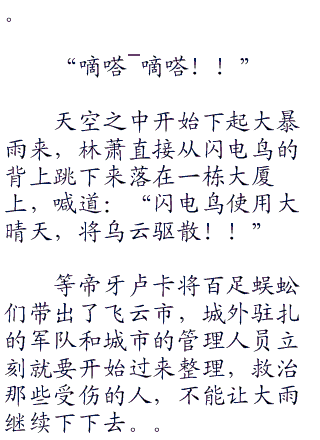 。
“嘀嗒¯嘀嗒！！”
天空之中开始下起大暴
雨来，林萧直接从闪电鸟的
背上跳下来落在一栋大厦
上，喊道：“闪电鸟使用大
晴天，将乌云驱散！！”
等帝牙卢卡将百足蜈蚣
们带出了飞云市，城外驻扎
的军队和城市的管理人员立
刻就要开始过来整理，救治
那些受伤的人，不能让大雨
继续下下去。。